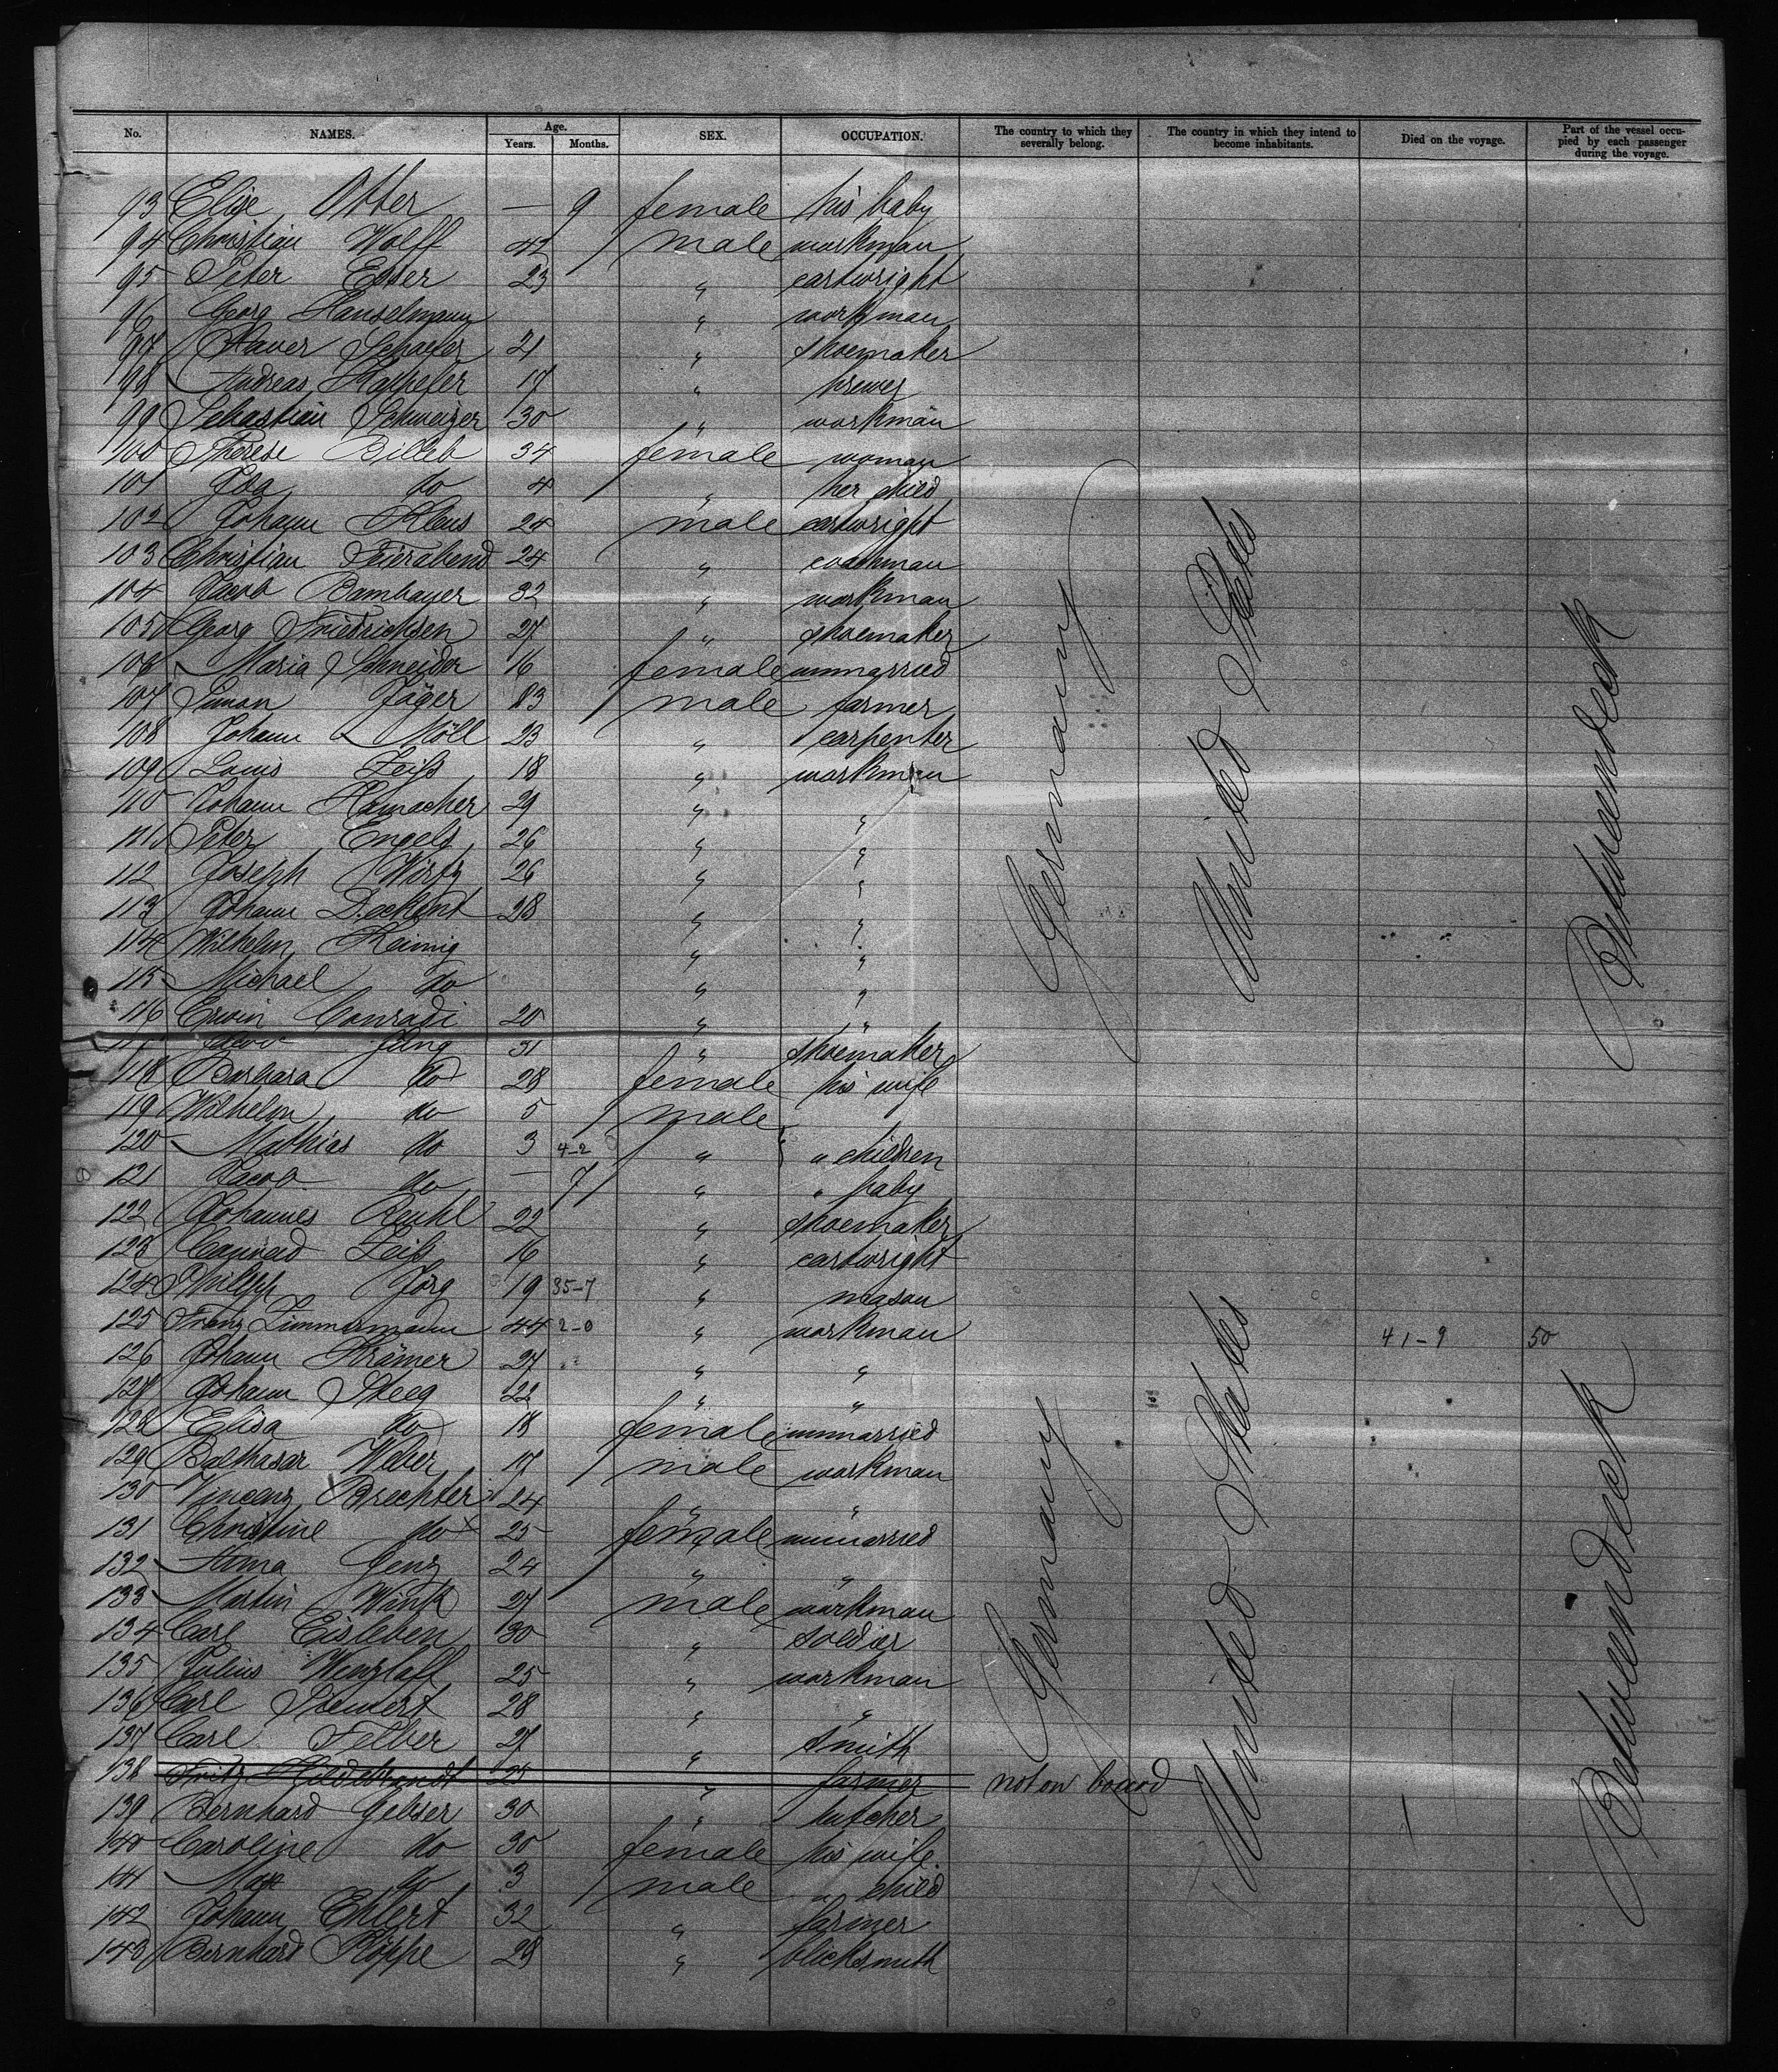 No. NAMES. Age. Years. Months. SEX. OCCUPATION. The country to which they severally belong. The country in which they intend to become inhabitants. Died on the voyage. Part of the vessel occupied by each passenger during the voyage.
93 Elise Otter — 9 female his baby
94 Christian Wolff 42 male workman
95 Peter Esser 23 " cartwright
96 Georg Hanselmann " workman
97 Xaver Schaefer 21 " shoemaker
98 Andreas 17 " brewer
99 Sebastian Schweizer 30 " workman
100 Therese Billeb 34 female woman
101 Ida do 4 " her child
102 Johann Klaus 24 male cartwright
103 Christian Feierabend 24 " coachman
104 Jacob Bambauer 32 " workman
105 Georg Friedrichsen 27 " shoemaker
106 Maria Schneider 16 female unmarried
107 Simon Jäger 83 male farmer
108 Johann Möll 23 " carpenter
109 Louis Zeiß 18 " workman
110 Johann Hamacher 29 " "
111 Peter Engels 26 " "
112 Joseph Wirtz 26 " "
113 Johann 28 " "
114 Wilhelm Reinig " "
115 Michael do " "
116 Erwin Conradi 20 " "
117 Jacob Jung 31 " shoemaker
118 Barbara do 28 female his wife
119 Wilhelm do 5 male
120 Mathias do 3 4-2 " " children
121 Jacob do — 7 " " baby
122 Johannes Ruhl 22 " shoemaker
123 Conrad Zeiß 16 " cartwright
124 Philipp Jörg 19 35-7 " mason
125 Franz Zimmermann 44 2-0 " workman 41-9 50
126 Johann Krämer 27 " "
127 Johann Steeg 22 " "
128 Elisa do 18 female unmarried
129 Balthasar Weber 17 male workman
130 Vincenz Brechter 24 " "
131 Christine do x 25 female unmarried
132 Anna Genz 24 " "
133 Martin Wink 27 male workman
134 Carl Eisleben 30 " soldier
135 Julius Wenzlaff 25 " workman
136 Carl Siewert 28 " "
137 Carl Felber 27 " smith
138 Fritz Hildebrandt 25 " farmer not on board
139 Bernhard Gebser 30 " butcher
140 Caroline do 30 female his wife
141 Max do 3 male " child
142 Johann Ehlert 32 " farmer
143 Bernhard Köppe 28 " blacksmith
Germany
United States
Betweendeck
Germany
United States
Betweendeck